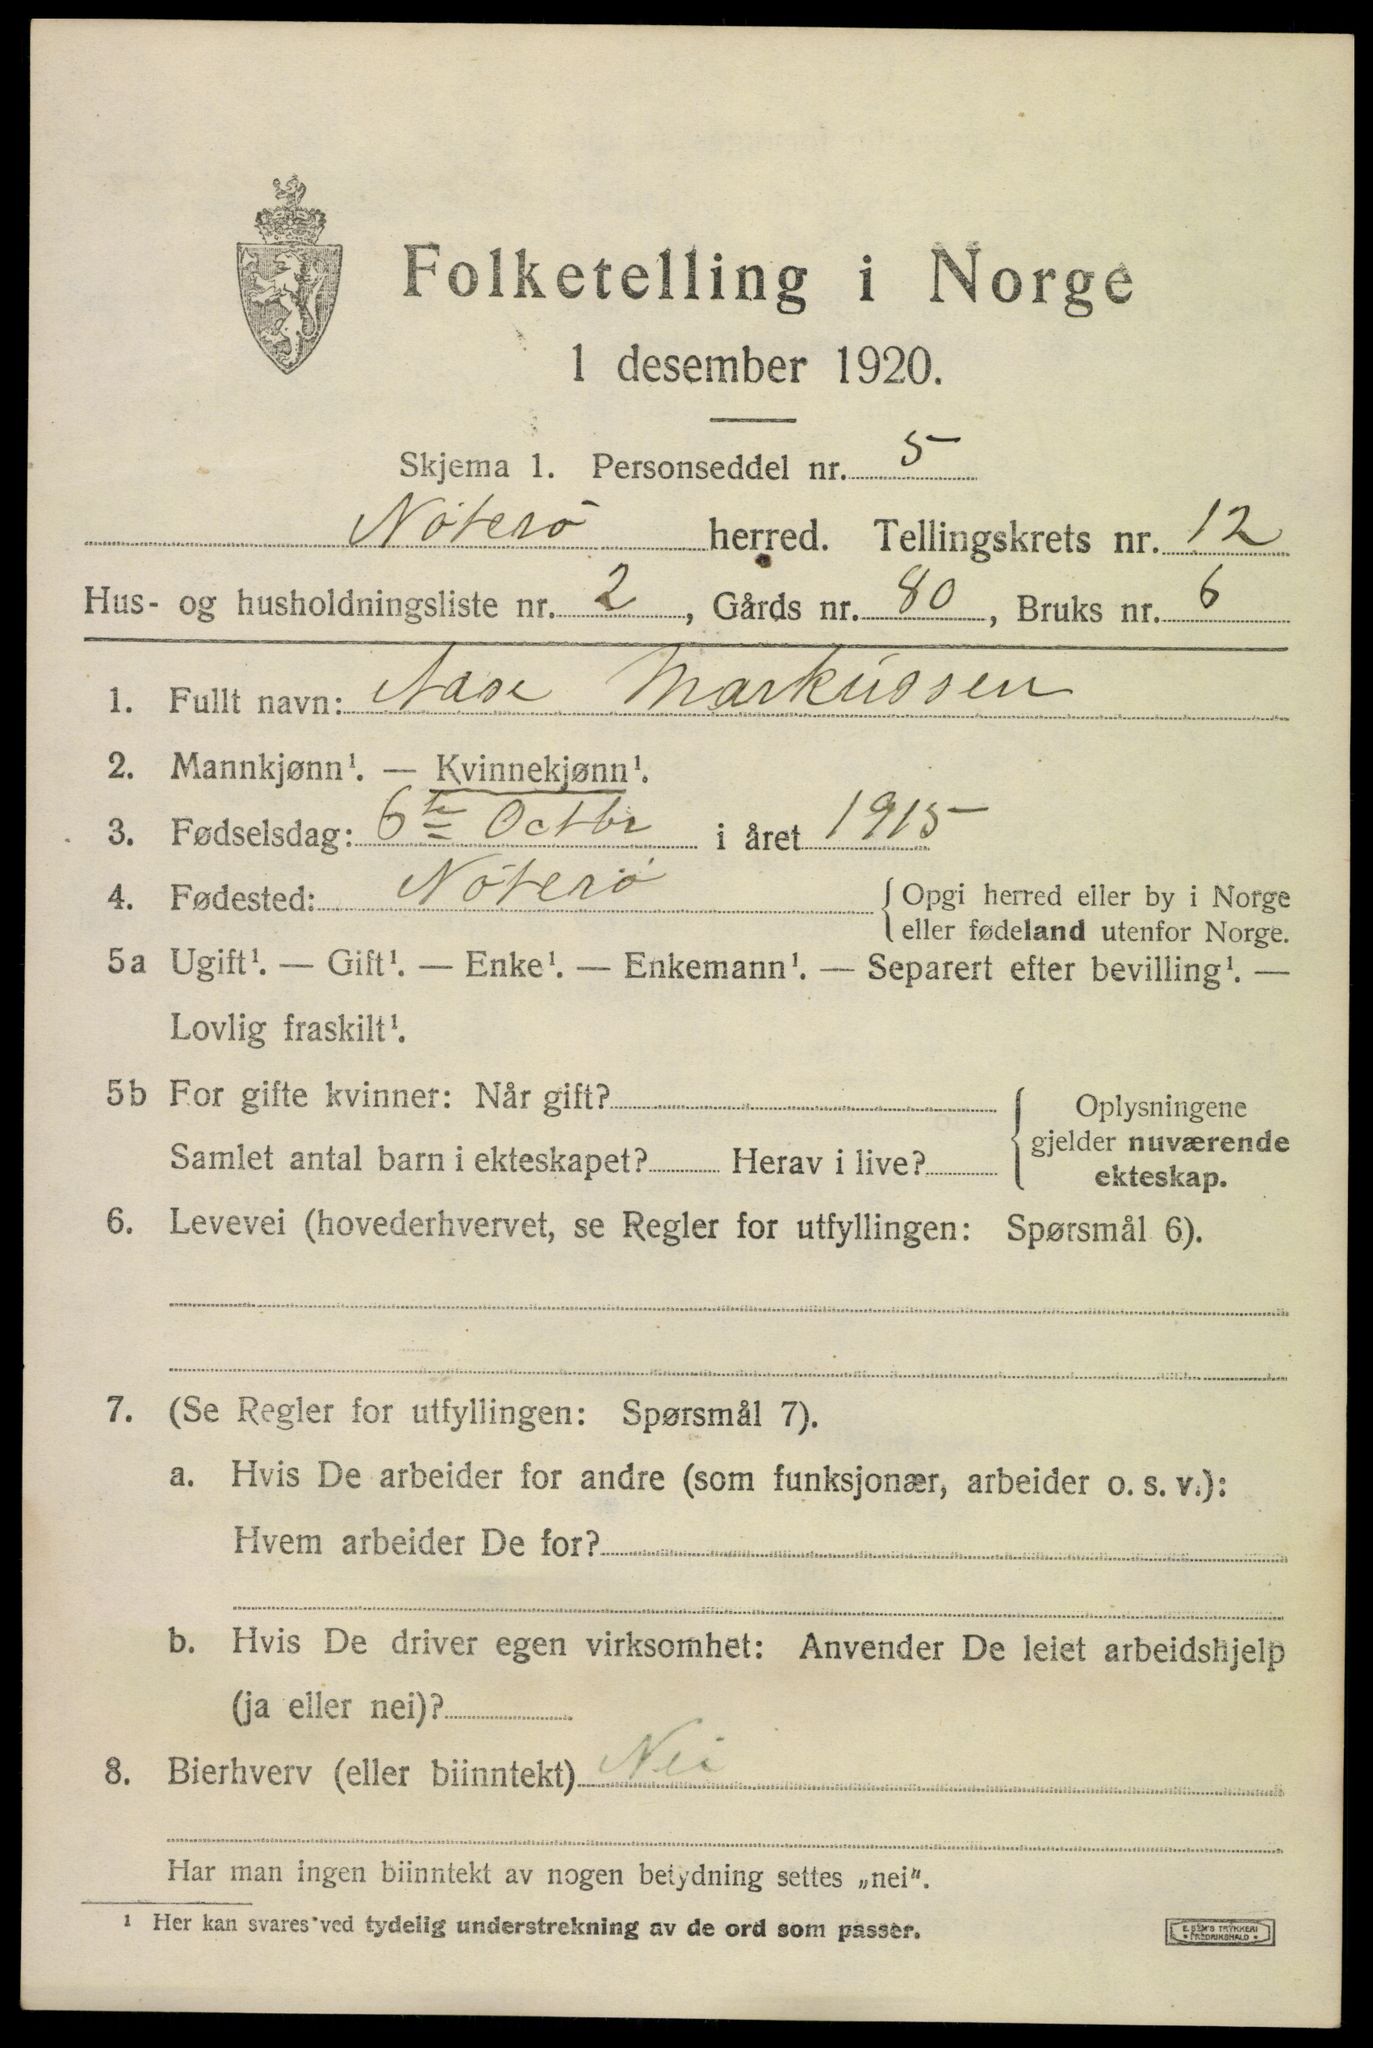 Folketelling i Norge
1 desember 1920.
Skjema 1. Personseddel nr. 5
Nöterö herred. Tellingskrets nr. 12
Hus- og husholdningsliste nr. 2, Gårds nr. 80, Bruks nr. 6
1. Fullt navn: Aase Markussen
2. Mannkjønn¹. — Kvinnekjønn¹.
3. Fødselsdag: 6te Octbr i året 1915
4. Fødested: Nöterö {Opgi herred eller by i Norge
eller fødeland utenfor Norge.
5a Ugift¹. — Gift¹. — Enke¹. — Enkemann¹. — Separert efter bevilling¹. —
Lovlig fraskilt¹.
5b For gifte kvinner: Når gift?
Samlet antal barn i ekteskapet? Herav i live?
{Oplysningene
gjelder nuværende
ekteskap.
6. Levevei (hovederhvervet, se Regler for utfyllingen: Spørsmål 6).
7. (Se Regler for utfyllingen: Spørsmål 7).
a. Hvis De arbeider for andre (som funksjonær, arbeider o. s. v.):
Hvem arbeider De for?
b. Hvis De driver egen virksomhet: Anvender De leiet arbeidshjelp
(ja eller nei)?
8. Bierhverv (eller biinntekt) Nei
Har man ingen biinntekt av nogen betydning settes „nei".
¹ Her kan svares ved tydelig understrekning av de ord som passer.
E. SEM'S TRYKKERI
* FREDRIKSHALD *